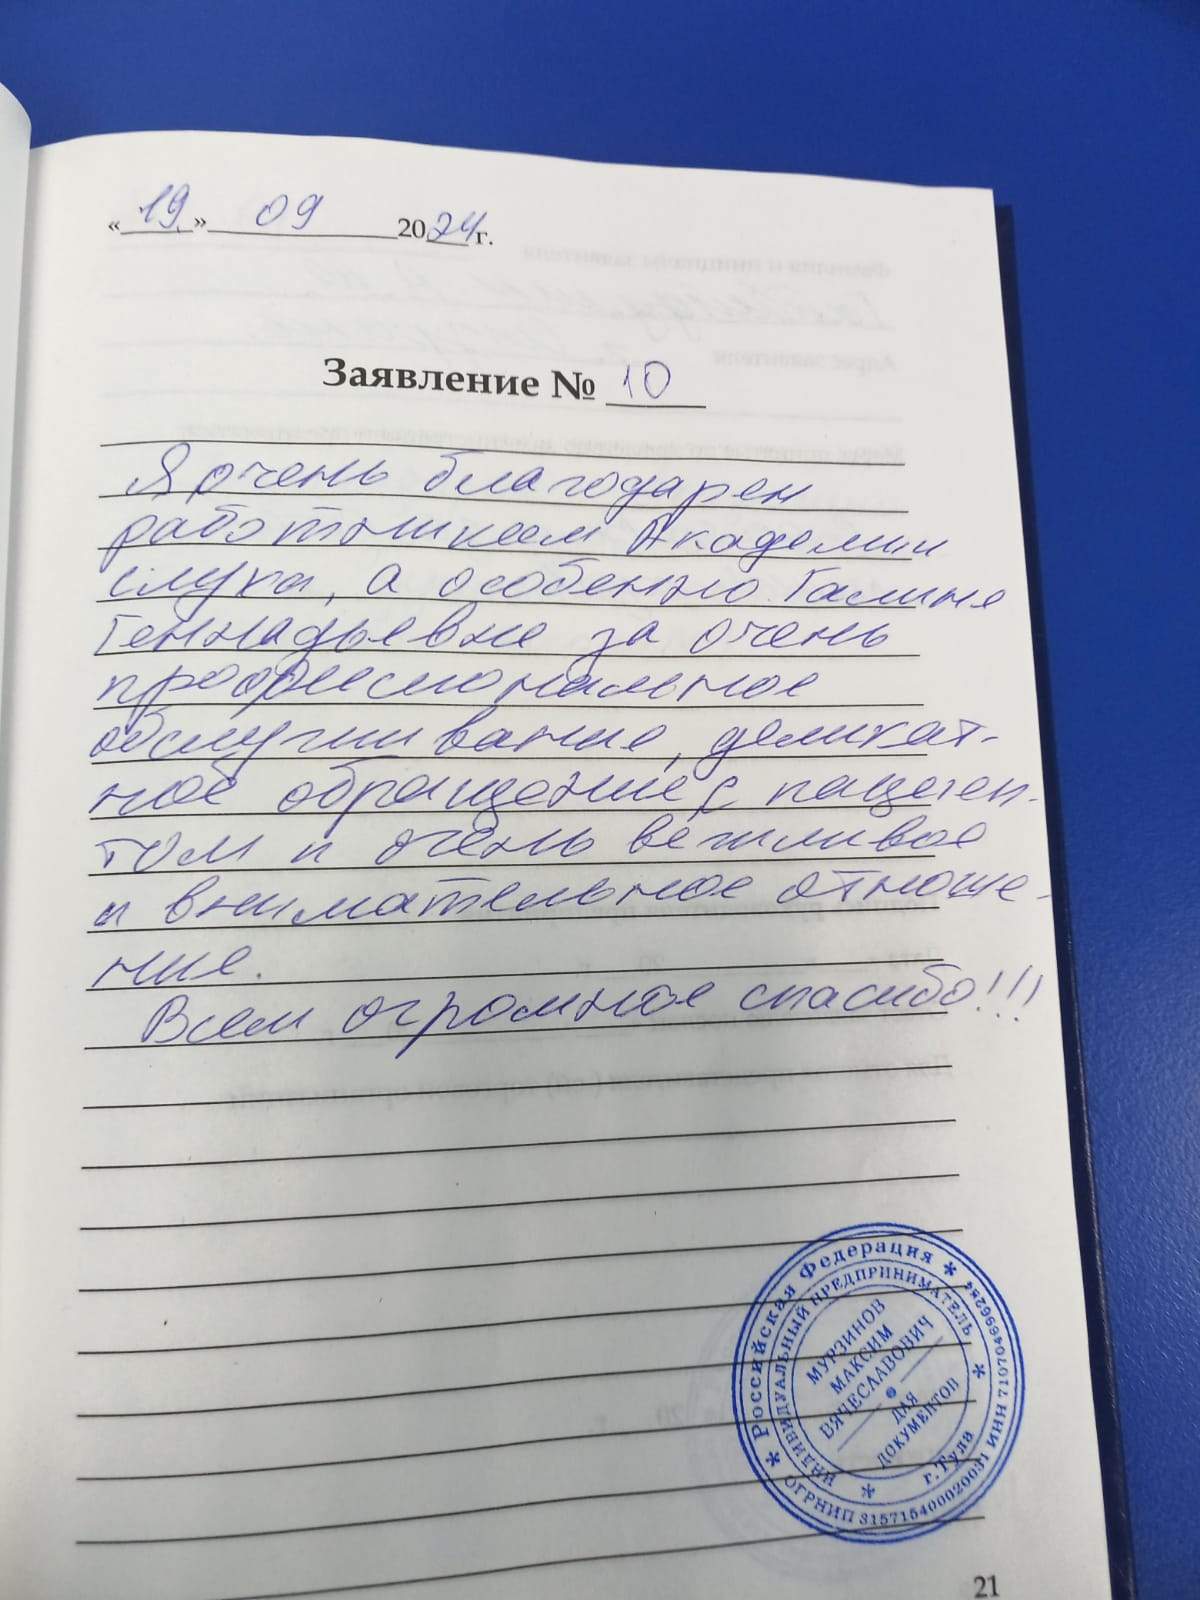 «19» 09 2024 г.
Заявление № 10
Я очень благодарен
работникам Академии
слуха, а особенно Галине
Геннадьевне за очень
профессиональное
обслуживание, деликат-
ное обращение с пациен-
том и очень вежливое
и внимательное отноше-
ние.
Всем огромное спасибо!!!
* Российская Федерация *
ИНДИВИДУАЛЬНЫЙ ПРЕДПРИНИМАТЕЛЬ
МУРЗИНОВ
МАКСИМ
ВЯЧЕСЛАВОВИЧ
ДЛЯ
ДОКУМЕНТОВ
* г. Тула *
ОГРНИП 315715400020031 ИНН 710704696284
21